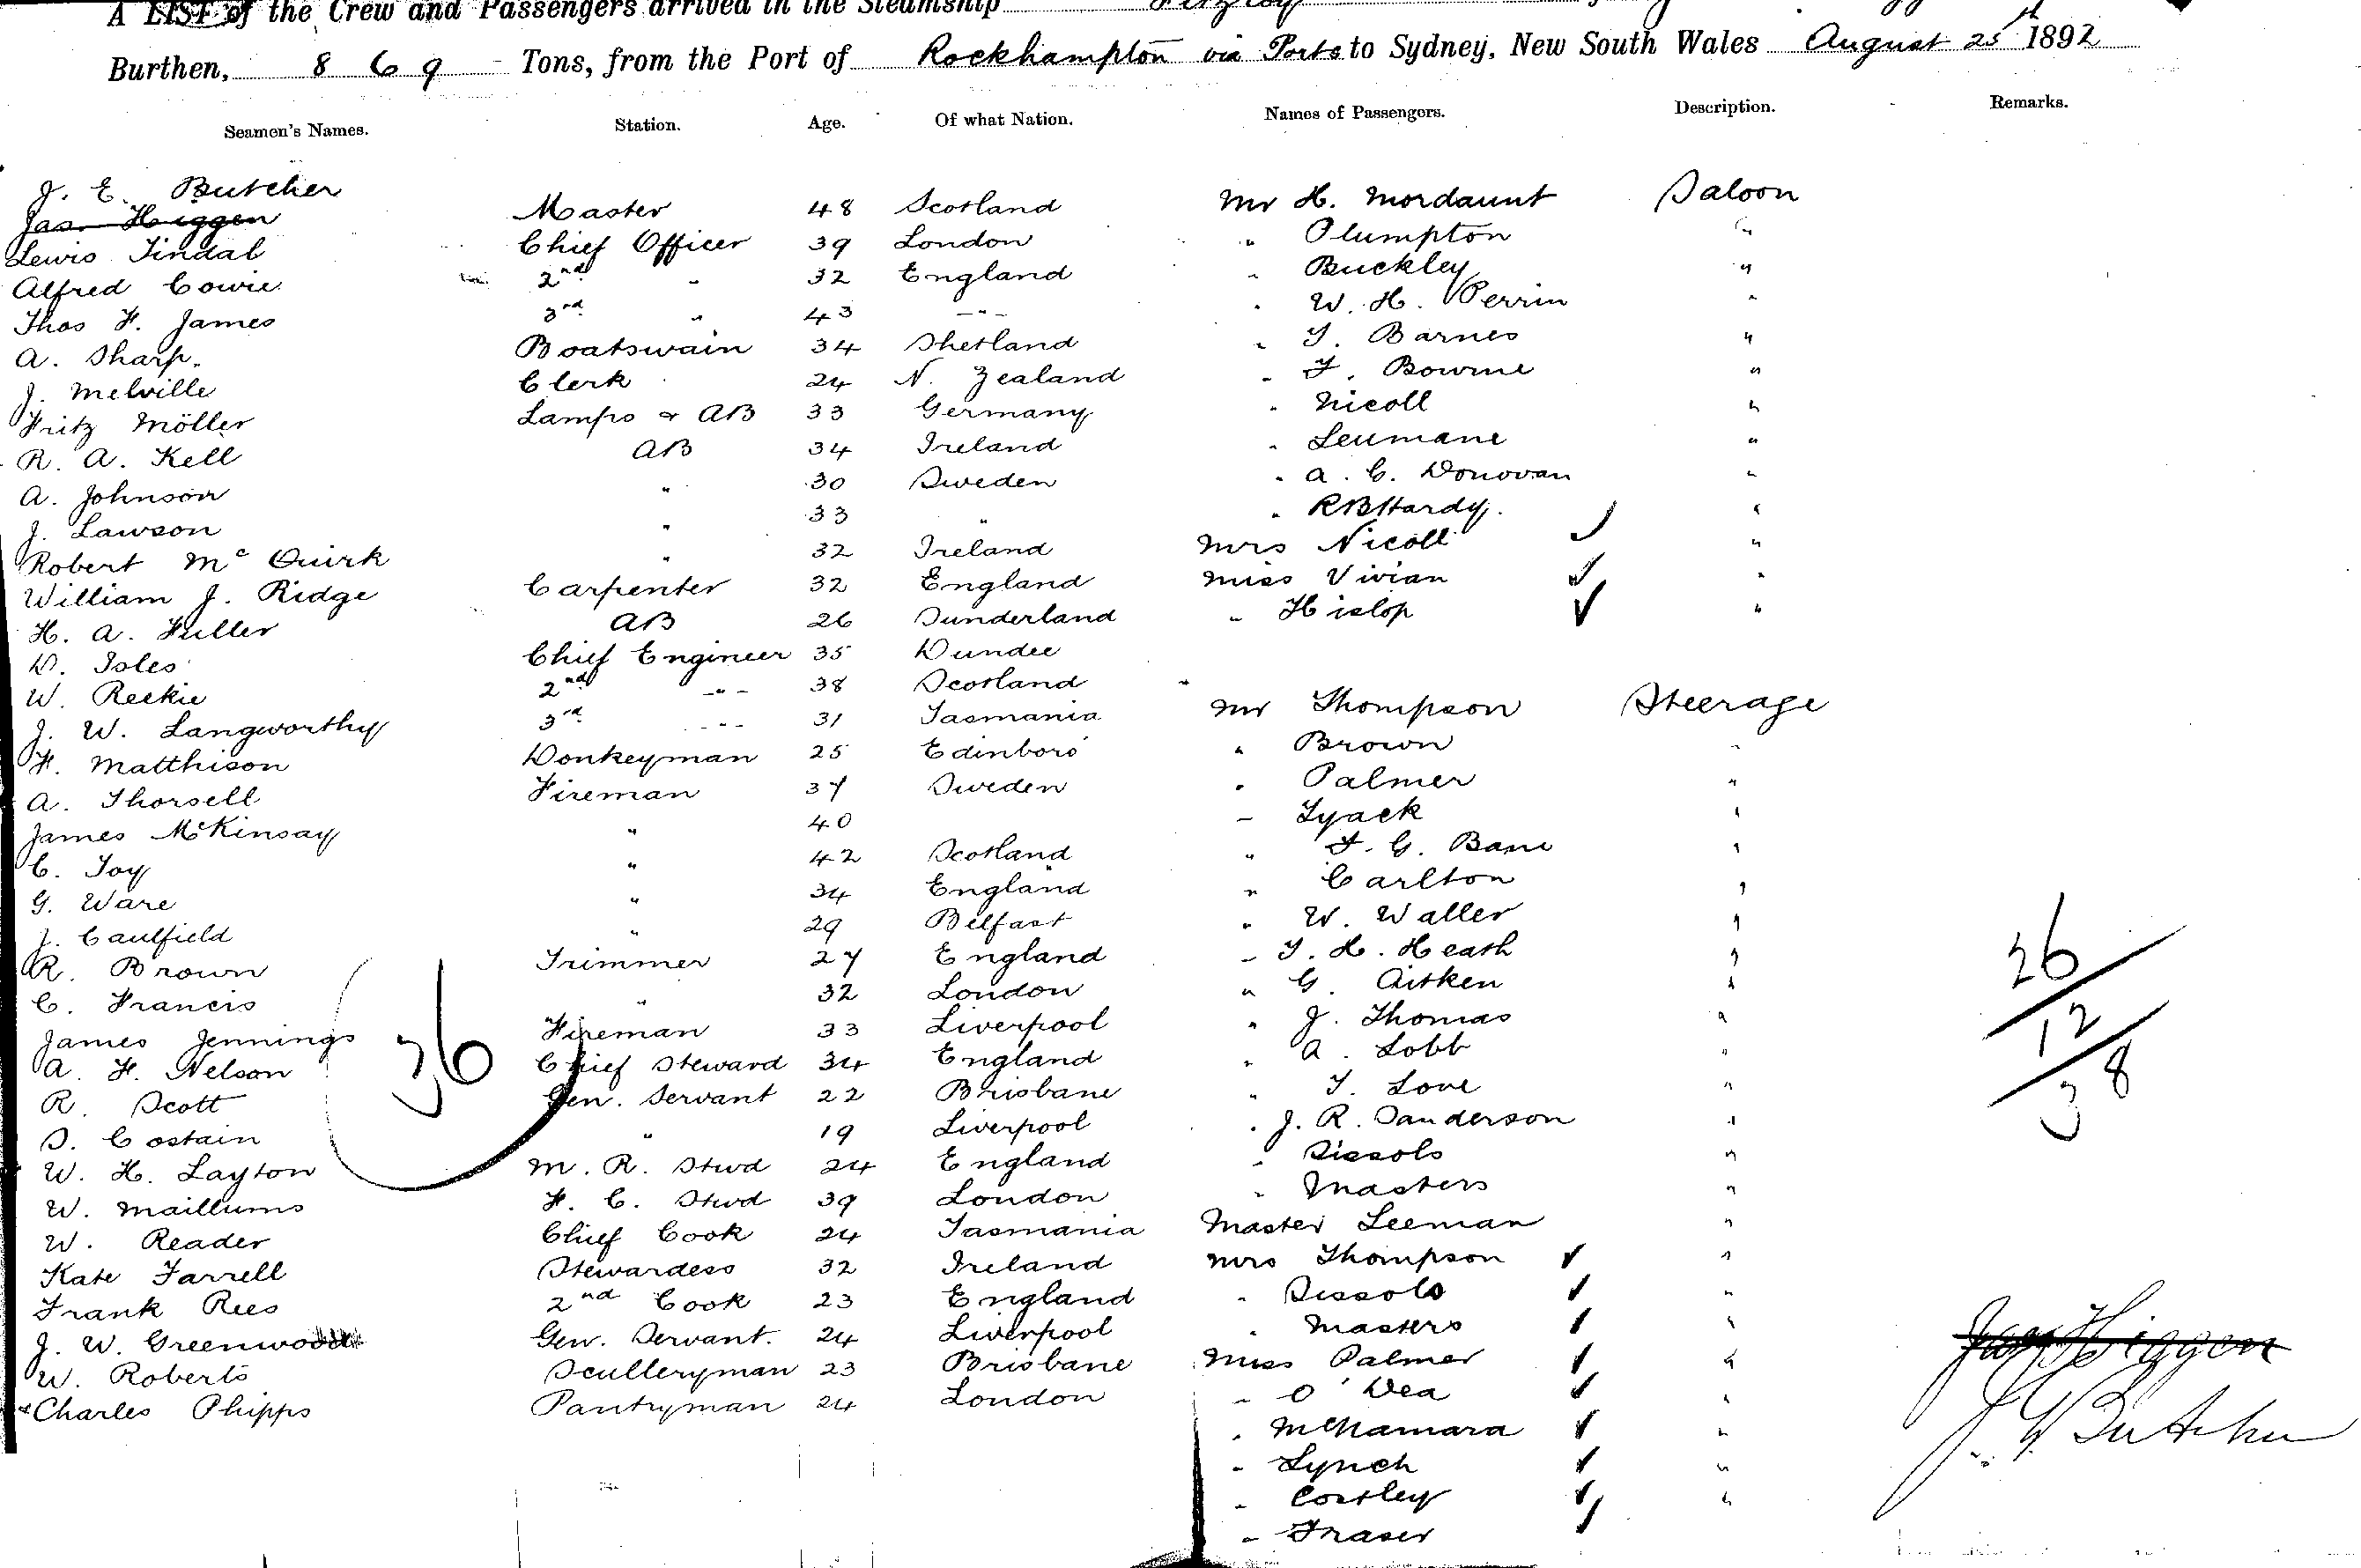 A LIST of the Crew and Passengers arrived in the Steamship Fitzroy
Burthen, 869 Tons, from the Port of Rockhampton via Ports to Sydney, New South Wales August 25th 1892
Seamen's Names. Station. Age. Of what Nation. Names of Passengers. Description. Remarks.
J. E. Butcher Master 48 Scotland Mr H. Mordaunt Saloon
Jas. Higgen
Lewis Tindal Chief Officer 39 London " Plumpton "
Alfred Cowie 2nd " 32 England " Buckley "
Thos F. James 3rd " 43 -"- " W. H. Perrin "
A. Sharp. Boatswain 34 Shetland " T. Barnes "
J. Melville Clerk 24 N. Zealand " F. Bourne "
Fritz Möller Lamps & AB 33 Germany " Nicoll "
R. A. Kell AB 34 Ireland " Leumane "
A. Johnson " 30 Sweden " A. C. Donovan "
J. Lawson " 33 " " R B Hardy. "
Robert McQuirk " 32 Ireland Mrs Nicoll "
William J. Ridge Carpenter 32 England Miss Vivian "
H. A. Fuller AB 26 Sunderland " Hislop "
D. Isles Chief Engineer 35 Dundee
W. Reekie 2nd -"- 38 Scotland Mr Thompson Steerage
J. W. Langworthy 3rd -"- 31 Tasmania " Brown "
F. Matthison Donkeyman 25 Edinboro " Palmer "
A. Thorsell Fireman 37 Sweden " Lyack "
James McKinsay " 40 " F. G. Bane "
C. Toy " 42 Scotland " Carlton "
G. Ware " 34 England " W. Waller "
J. Caulfield " 29 Belfast " T. H. Heath "
R. Brown Trimmer 27 England " G. Aitken "
C. Francis " 32 London " J. Thomas "
James Jennings Fireman 33 Liverpool " A. Lobb "
A. F. Nelson Chief Steward 34 England " T. Love "
R. Scott Gen. Servant 22 Brisbane " J. R. Sanderson "
S. Costain " 19 Liverpool " Sissols "
W. H. Layton M. R. Stwd 24 England " Masters "
W. Maillums F. C. Stwd 39 London Master Leeman "
W. Reader Chief Cook 24 Tasmania Mrs Thompson "
Kate Farrell Stewardess 32 Ireland " Sissols "
Frank Rees 2nd Cook 23 England " Masters "
J. W. Greenwood Gen. Servant. 24 Liverpool Miss Palmer "
W. Roberts Sculleryman 23 Brisbane " O'Dea "
Charles Phipps Pantryman 24 London " McNamara "
" Lynch "
" Costley "
" Fraser
36
26
12
38
Jas Higgen
J. E. Butcher